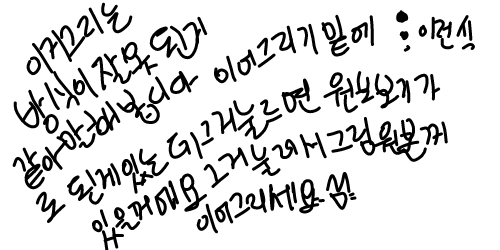 이거그리는
방식이잘못된게
같아말해봅니다 이어그리기 밑에 : 이런식
로 된게있는데그거눌르면 원본보기가
있을꺼에요 그거눌러서그럼원본꺼
이어그리세요